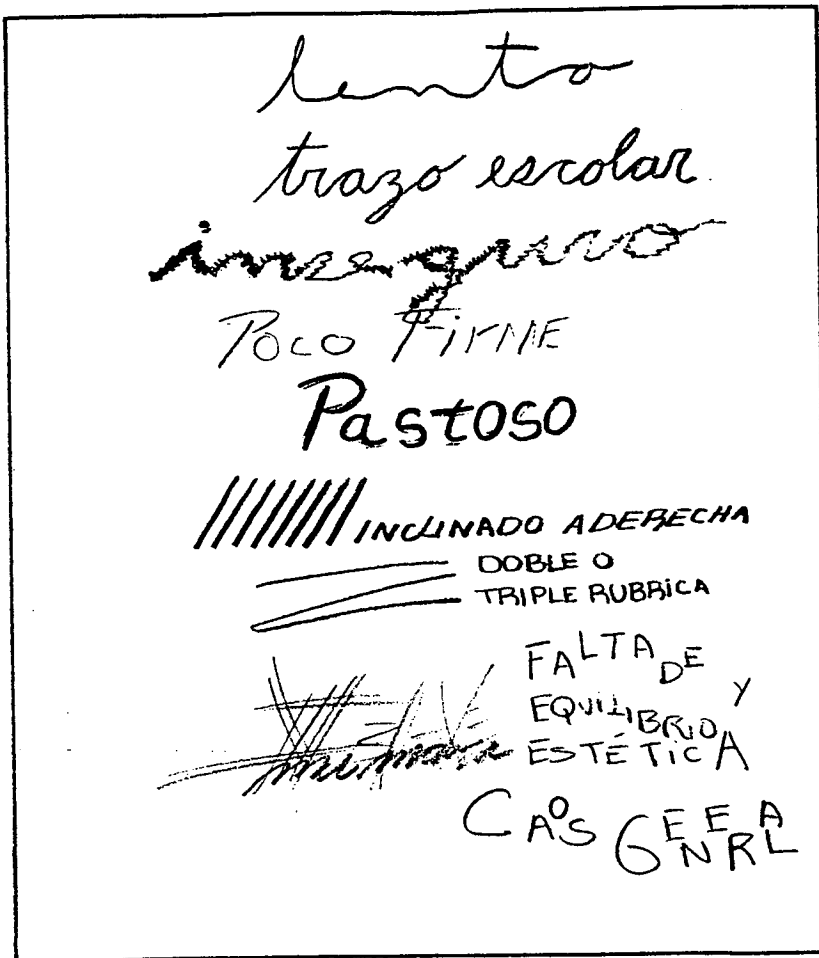 lento
trazo escolar
inseguro
POCO FiRME
Pastoso
INCLINADO A DERECHA
DOBLE O
TRIPLE RUBRiCA
FALTA DE
EQUiLIBRiO Y
ESTÉTiCA
CAOS GENERAL